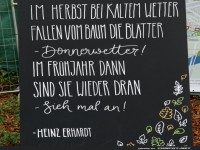 IM HERBST BEI KALTEM WETTER
FALLEN VOM BAUM DIE BLÄTTER
- Donnerwetter!
IM FRÜHJAHR DANN
SIND SIE WIEDER DRAN
- Sieh mal an!
- HEINZ ERHARDT